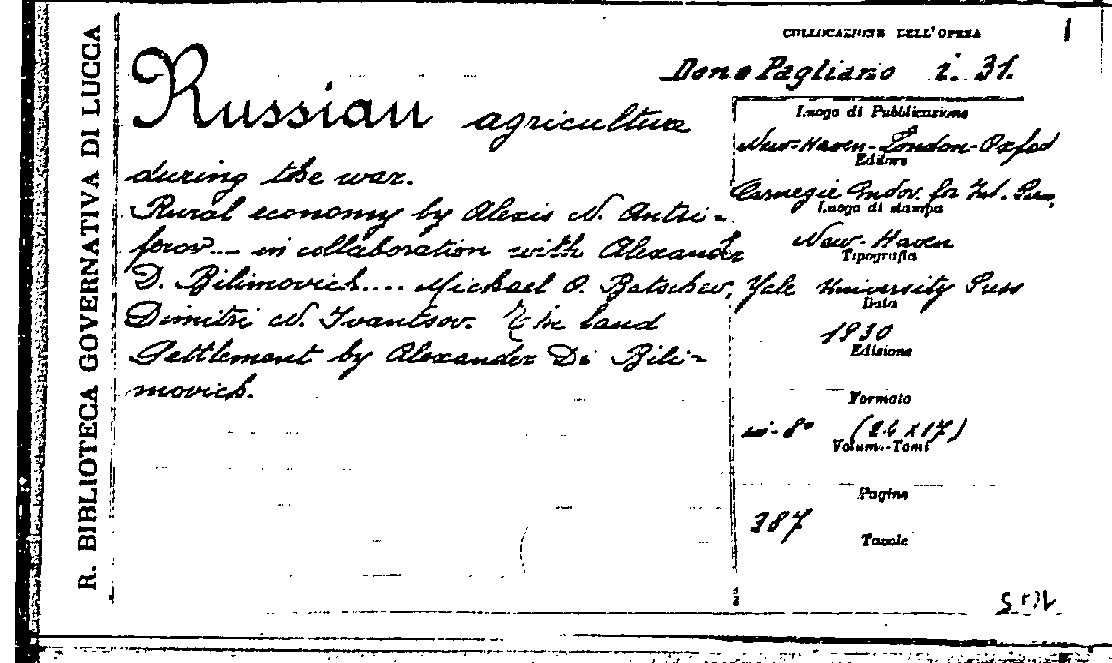 R. BIBLIOTECA GOVERNATIVA DI LUCCA
COLLOCAZIONE DELL'OPERA
1
Dono Pagliano i. 31.
Russian agriculture
during the war.
Rural economy by Alexis N. Antsi-
forov... in collaboration with Alexander
D. Bilimovich.... Michael O. Batschev,
Dimitri N. Ivantsov. The land
Settlement by Alexander D. Bili-
movich.
Luogo di Pubblicazione
New-Haven-London-Oxford
Editore
Carnegie Endov. for Int.
Luogo di stampa
New-Haven
Tipografia
Yale University Press
Data
1930
Edizione
Formato
in-8° (26x17)
Volumi-Tomi
Pagine
387
Tavole